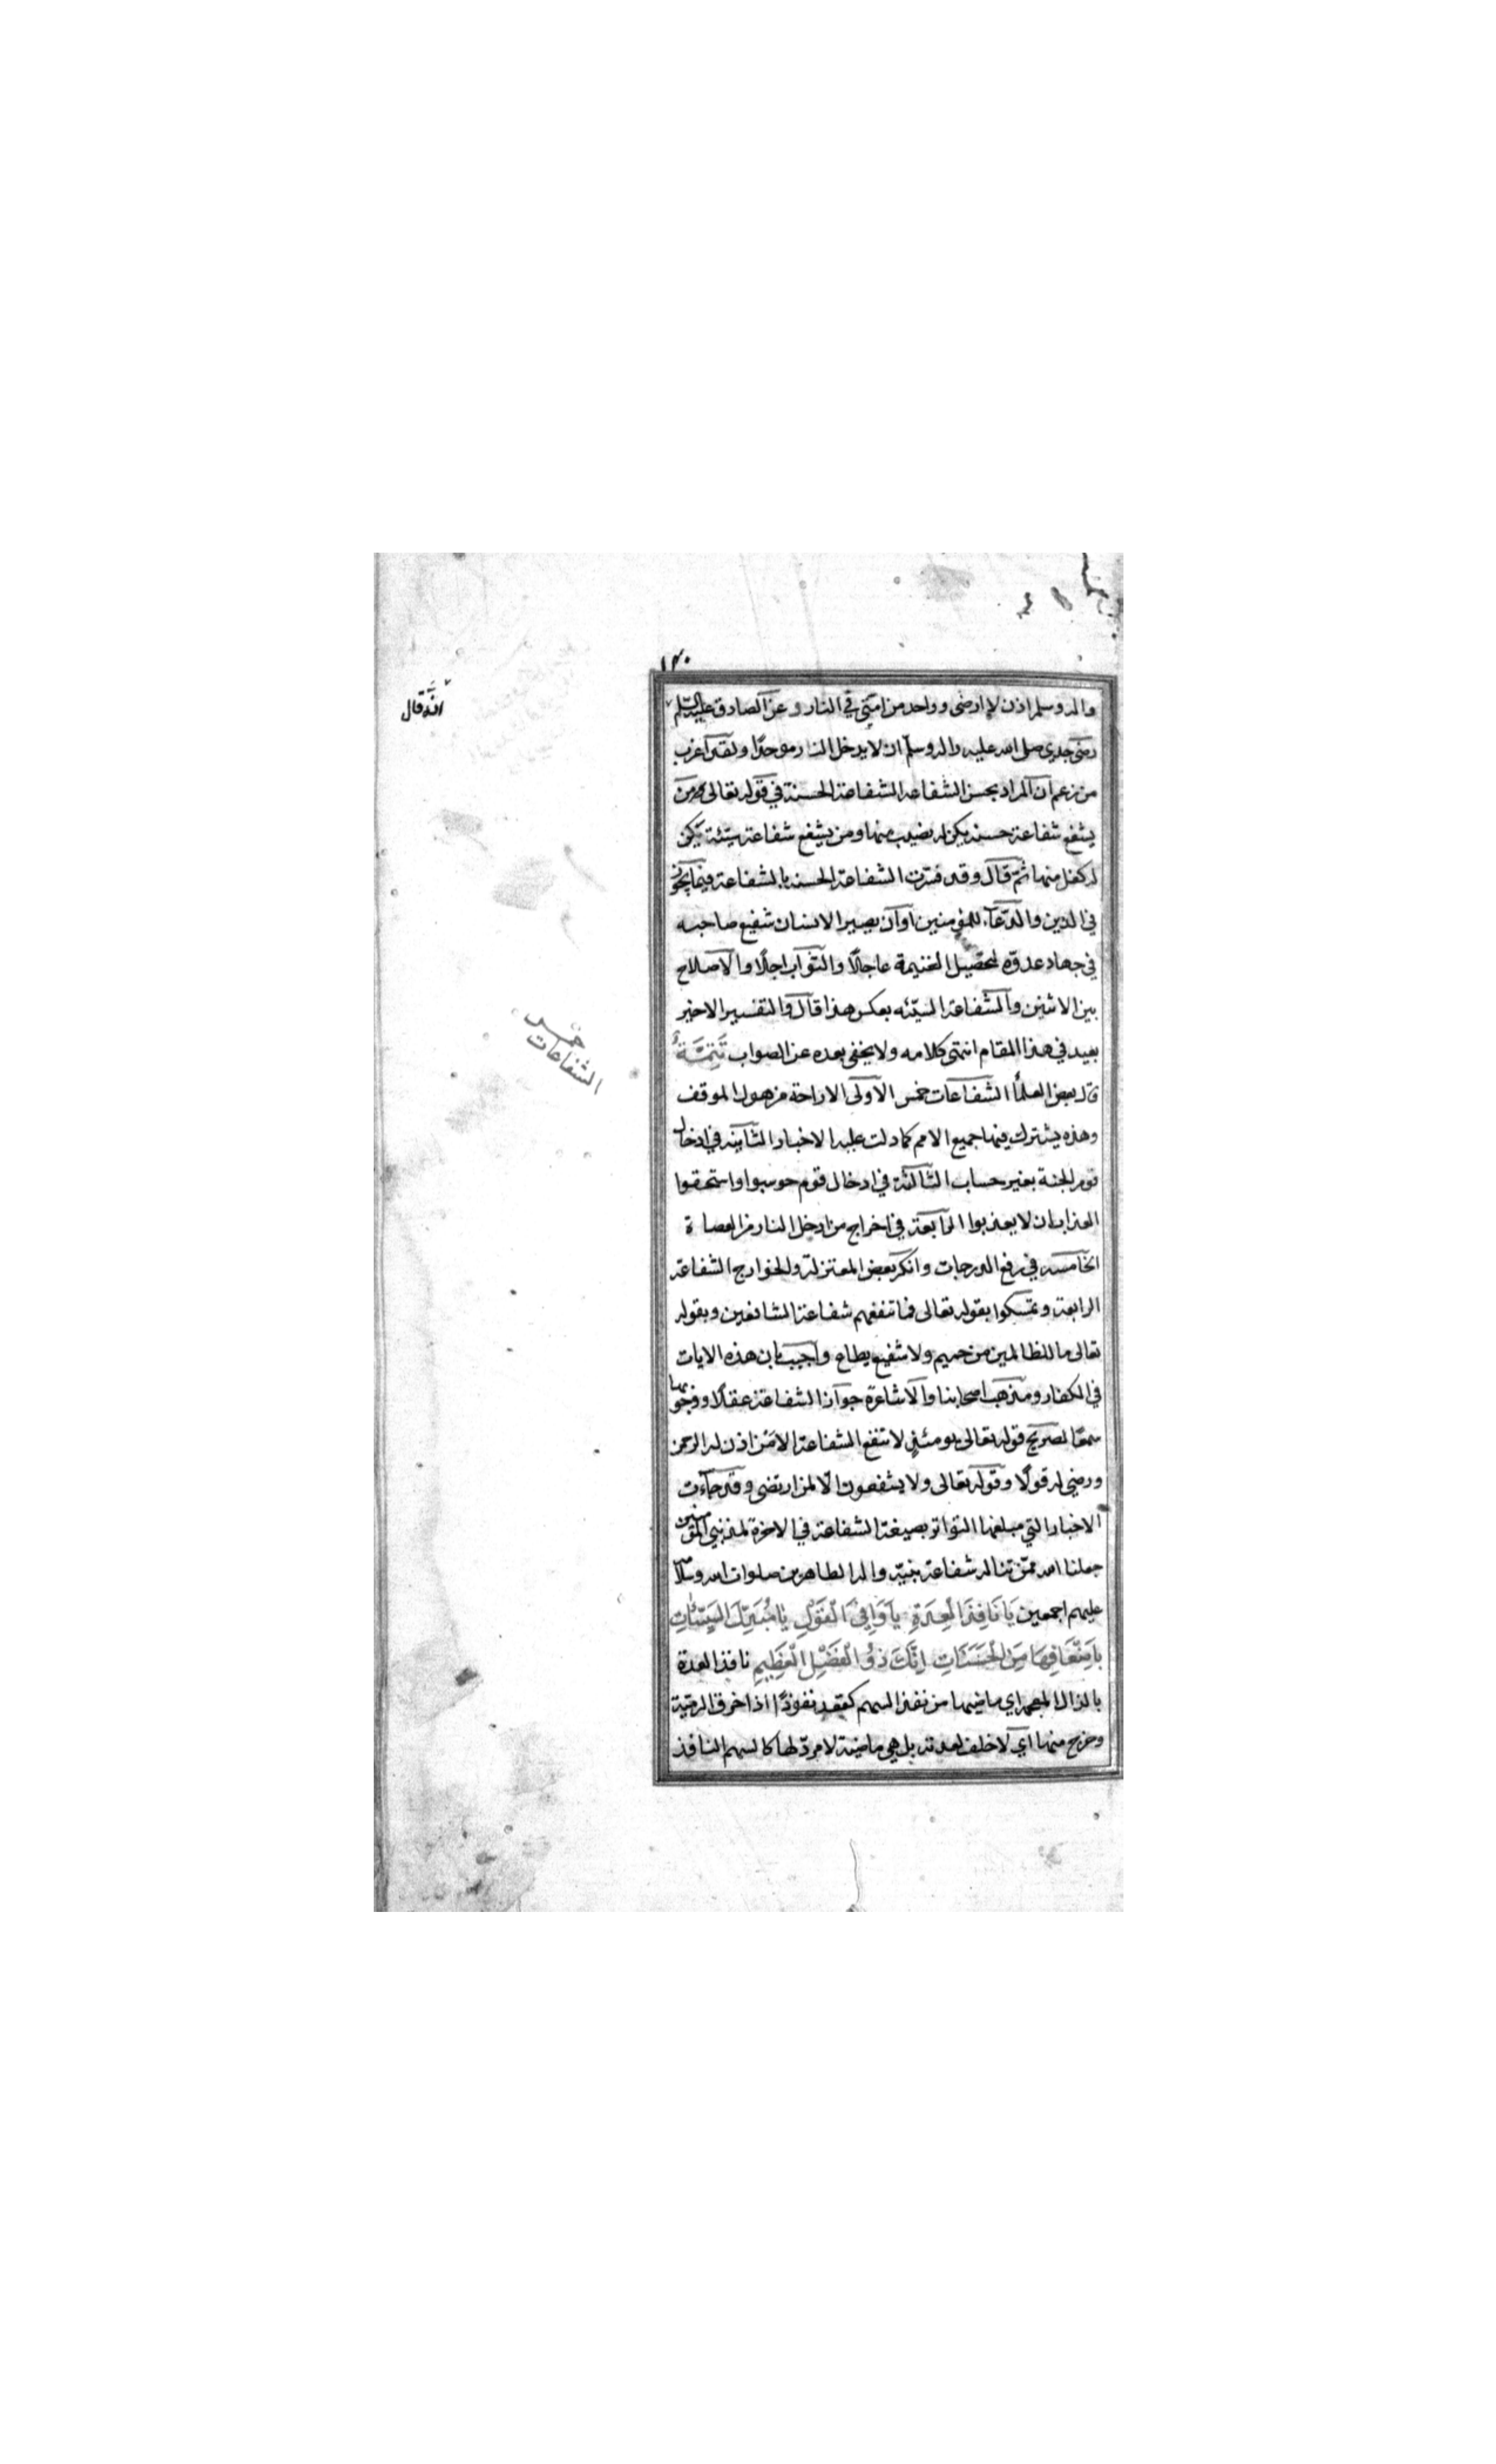 ١٣٠
واله وسلم اذن لا ارضى وواحد من امتي في النار وعن الصادق عليه السلم
انه قال
رضى جدي صلى الله عليه واله وسلم ان لا يدخل النار موحدا ولقد اغرب
من زعم ان المراد بحسن الشفاعه الشفاعة الحسنة في قوله تعالى ومن
يشفع شفاعة حسنه يكن له نصيب منها ومن يشفع شفاعة سيئة يكن
له كفل منها ثم قال وقد فسرت الشفاعة الحسنه بالشفاعة فيما يجوز
في الدين والدعاء للمؤمنين او ان يصير الانسان شفيع صاحبه
في جهاد عدوه لتحصيل الغنيمة عاجلا والثواب اجلا والاصلاح
بين الاثنين والشفاعة السيئه بعكس هذا قال والتفسير الاخير
بعيد في هذا المقام انتهى كلامه ولا يخفى بعده عن الصواب تَتِمَّةٌ
خمس
الشفاعات
قال بعض العلمأ الشفاعات خمس الاولى الاراحة من هول الموقف
وهذه يشترك فيها جميع الامم كما دلت عليه الاخبار الثانيه في ادخال
قوم الجنة بغير حساب الثالثة في ادخال قوم حوسبوا واستحقوا
العذاب ان لا يعذبوا الرابعة في اخراج من ادخل النار من العصاة
الخامسه في رفع الدرجات وانكر بعض المعتزلة والخوارج الشفاعة
الرابعة وتمسكوا بقوله تعالى فما تنفعهم شفاعة الشافعين وبقوله
تعالى ما للظالمين من حميم ولا شفيع يطاع واجيب بان هذه الايات
في الكفار ومذهب اصحابنا والاشاعرة جواز الشفاعة عقلا ووجوبها
سمعا لصريح قوله تعالى يومئذ لا تنفع الشفاعة الا من اذن له الرحمن
ورضي له قولا وقوله تعالى ولا يشفعون الا لمن ارتضى وقد جاءت
الاخبار التي مبلغها التواتر بصيغة الشفاعة في الاخرة لمذنبي المؤمنين
جعلنا الله ممن تناله شفاعة نبيه واله الطاهرين صلوات الله وسلامه
عليهم اجمعين يَا نَافِذَ الْعِدَةِ يَا وَافِيَ الْقَوْلِ يَا مُبَدِّلَ السَّيِّئَاتِ
بِاَضْعَافِهَا مِنَ الْحَسَنَاتِ اِنَّكَ ذُو الْفَضْلِ الْعَظِيمِ نافذ العدة
بالذال المعجمه اي ماضيها من نفذ السهم كقعد نفوذا اذا خرق الرمية
وخرج منها اي لا خلف لعدته بل هي ماضية لا مرد لها كالسهم النافذ